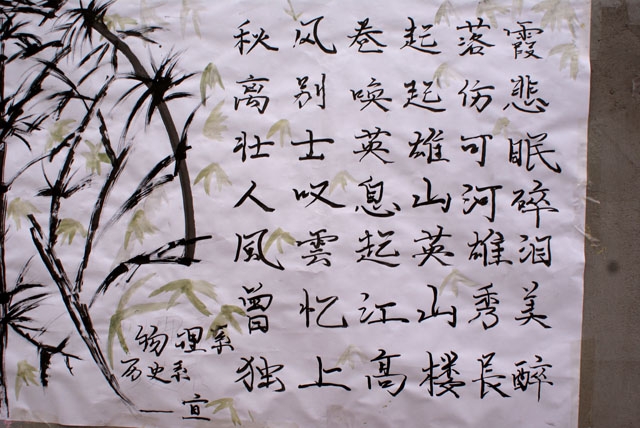 秋风卷起落霞
离别唤起伤悲
壮士英雄可眠
人叹息山河碎
風雲起英雄泪
曾忆江山秀美
独上高楼長醉
物理系
历史系
一宣